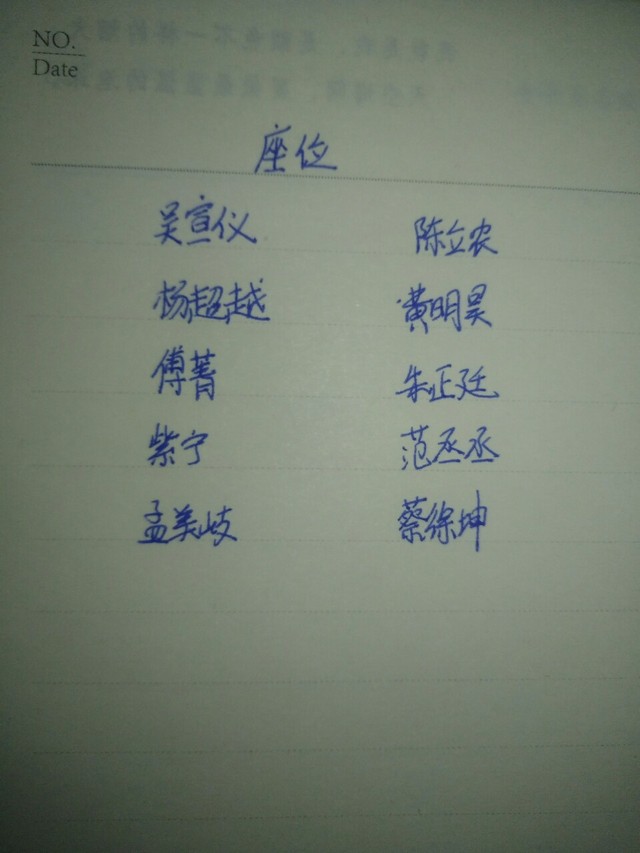 NO.
Date
座位
吴宣仪 陈立农
杨超越 黄明昊
傅菁 朱正廷
紫宁 范丞丞
孟美岐 蔡徐坤